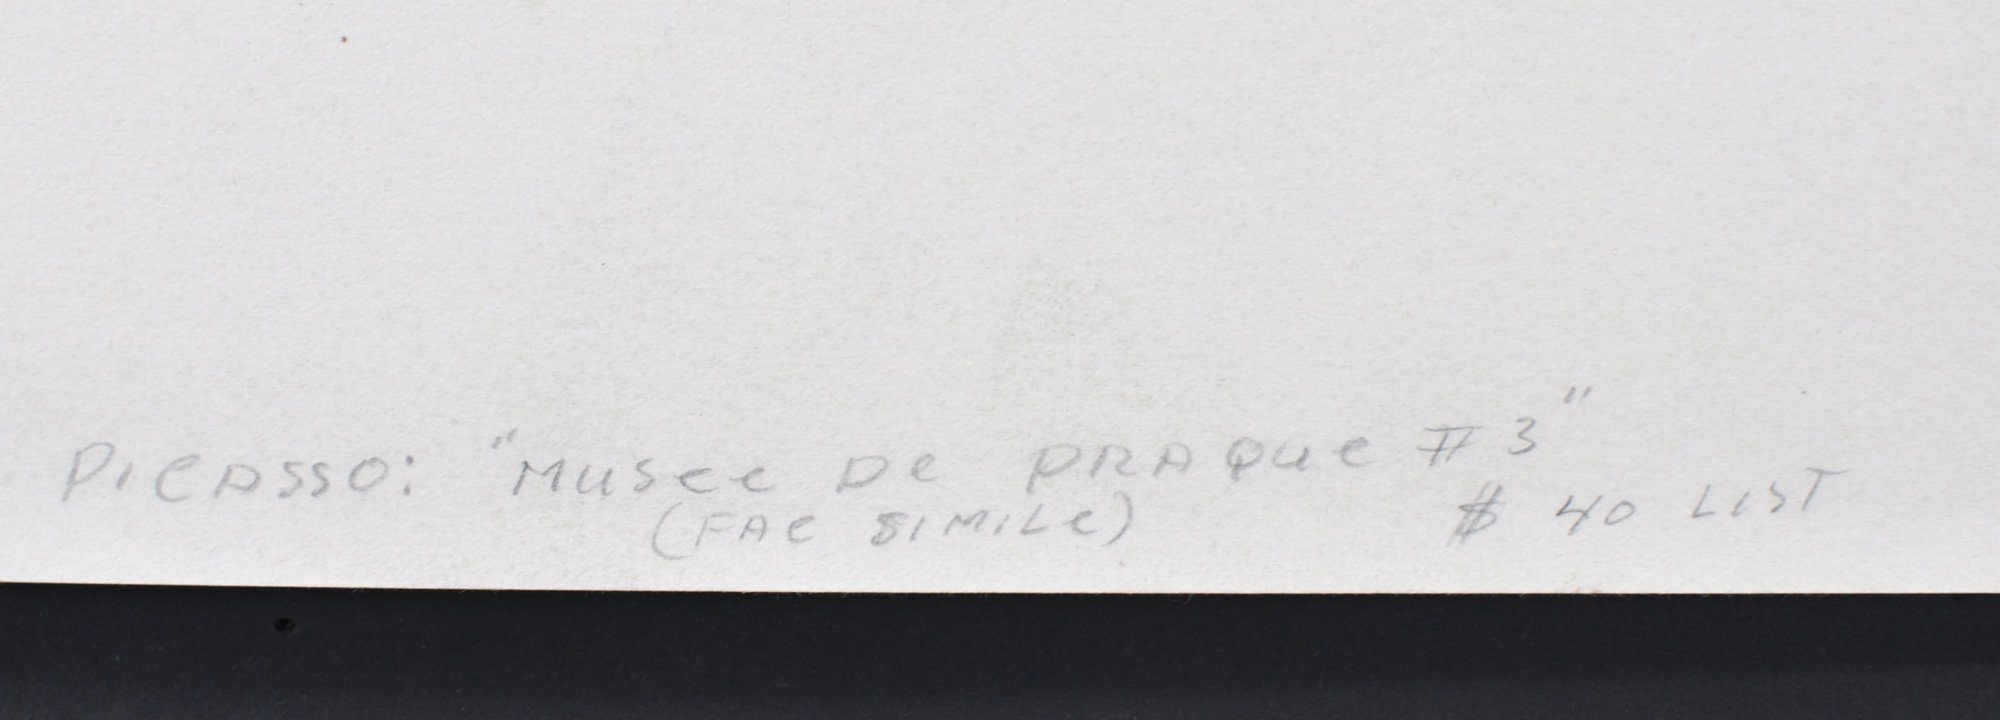 PICASSO: "MUSee De PRAQue #3"
(FAC SIMILe) $40 LIST